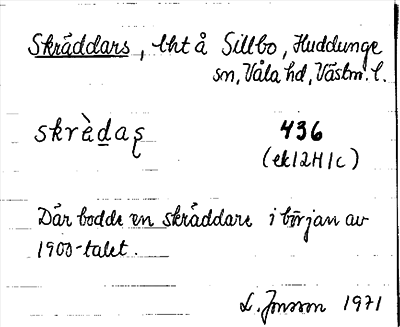 Skräddars, lht å Sillbo, Huddunge
sn, Våla hd, Västm. l.
skrèda̱ʂ 436
(ek 12H1c)
Där bodde en skräddare i början av
1900-talet.
L. Jonsson 1971